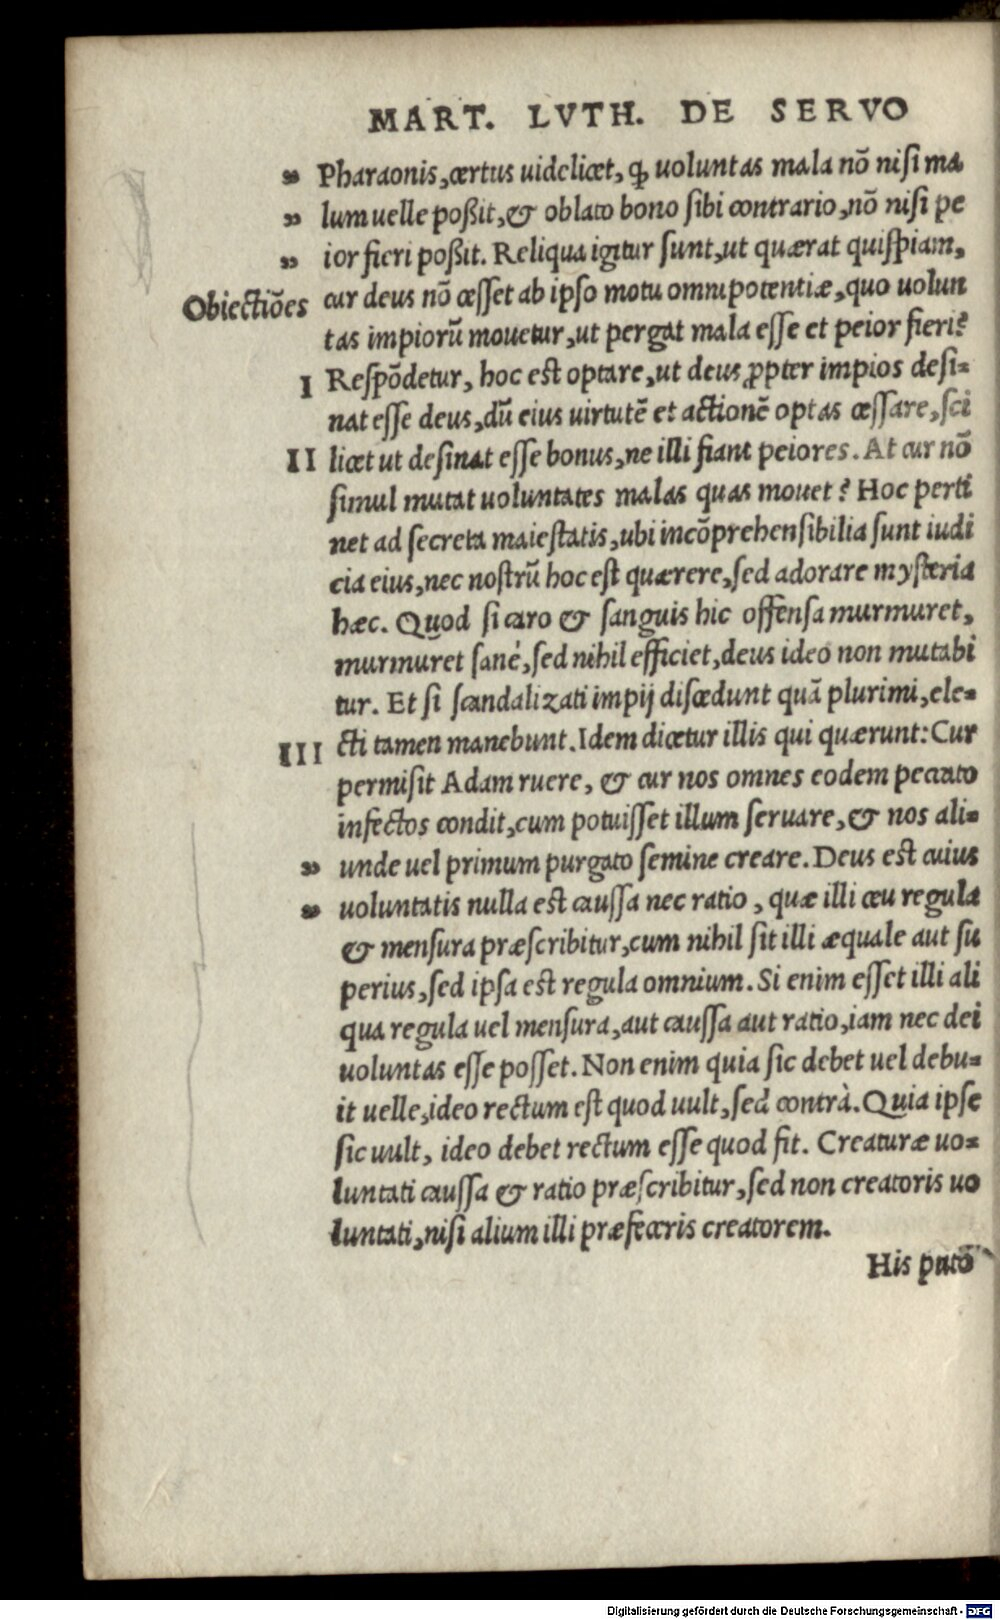 MART. LVTH. DE SERVO
„ Pharaonis, certus uidelicet, ꝙ uoluntas mala nõ nisi ma
„ lum uelle poßit, & oblato bono sibi contrario, nõ nisi pe
„ ior fieri poßit. Reliqua igitur sunt, ut quærat quispiam,
Obiectiões cur deus nõ cesset ab ipso motu omnipotentiæ, quo uolun
tas impiorũ mouetur, ut pergat mala esse et peior fieri?
I Respõdetur, hoc est optare, ut deus ꝓpter impios desi-
nat esse deus, dũ eius uirtutẽ et actionẽ optas cessare, sci
II licet ut desinat esse bonus, ne illi fiant peiores. At cur nõ
simul mutat uoluntates malas quas mouet? Hoc perti
net ad secreta maiestatis, ubi incõprehensibilia sunt iudi
cia eius, nec nostrũ hoc est quærere, sed adorare mysteria
hæc. Quod si caro & sanguis hic offensa murmuret,
murmuret sané, sed nihil efficiet, deus ideo non mutabi
tur. Et si scandalizati impij discedunt quã plurimi, ele-
III cti tamen manebunt. Idem dicetur illis qui quærunt: Cur
permisit Adam ruere, & cur nos omnes eodem peccato
infectos condit, cum potuisset illum seruare, & nos ali-
„ unde uel primum purgato semine creare. Deus est cuius
„ uoluntatis nulla est caussa nec ratio, quæ illi ceu regula
& mensura præscribitur, cum nihil sit illi æquale aut su
perius, sed ipsa est regula omnium. Si enim esset illi ali
qua regula uel mensura, aut caussa aut ratio, iam nec dei
uoluntas esse posset. Non enim quia sic debet uel debu-
it uelle, ideo rectum est quod uult, sed contrà. Quia ipse
sic uult, ideo debet rectum esse quod fit. Creaturæ uo-
luntati caussa & ratio præscribitur, sed non creatoris uo
luntati, nisi alium illi præfeceris creatorem.
His putõ
Digitalisierung gefördert durch die Deutsche Forschungsgemeinschaft - DFG